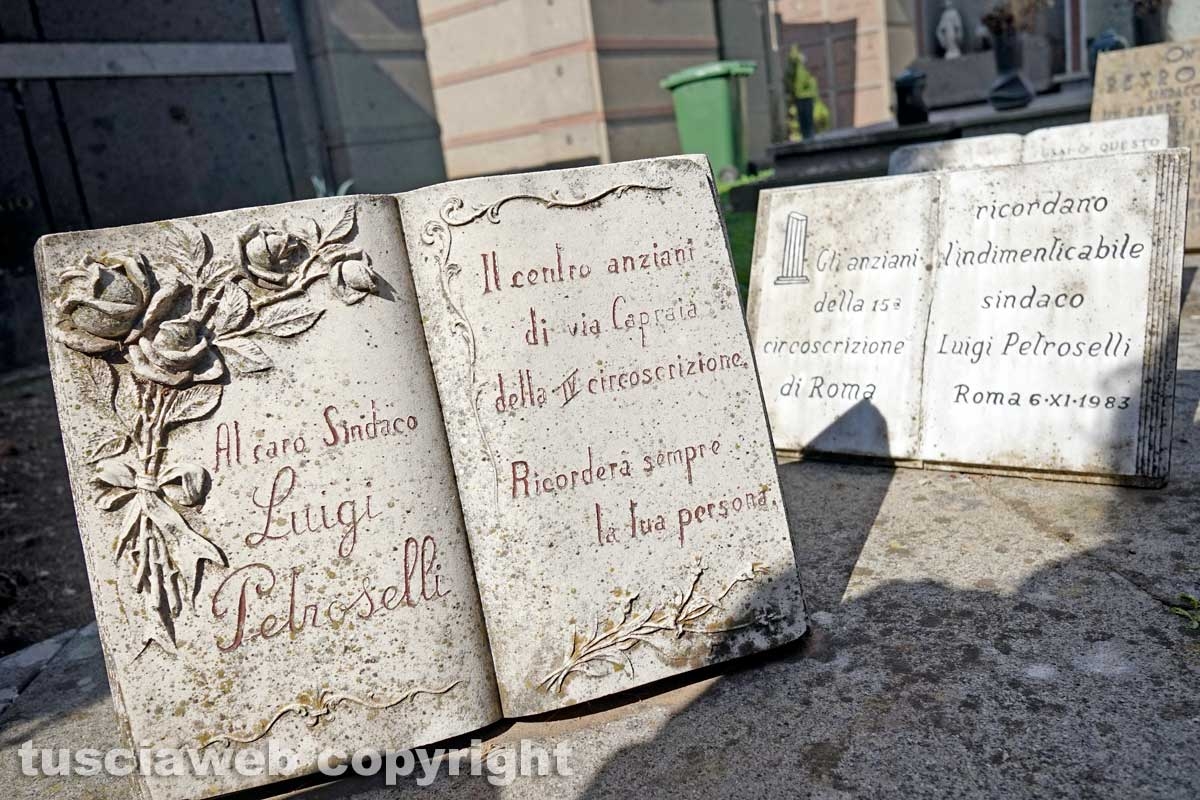 Al caro Sindaco
Luigi
Petroselli
Il centro anziani
di via Capraia
della IV circoscrizione.
Ricorderà sempre
la tua persona.
Gli anziani
della 15ª
circoscrizione
di Roma
ricordano
l'indimenticabile
sindaco
Luigi Petroselli
Roma 6·XI·1983
QUESTO
PETRO
SINDACO
GRANDE
tusciaweb copyright